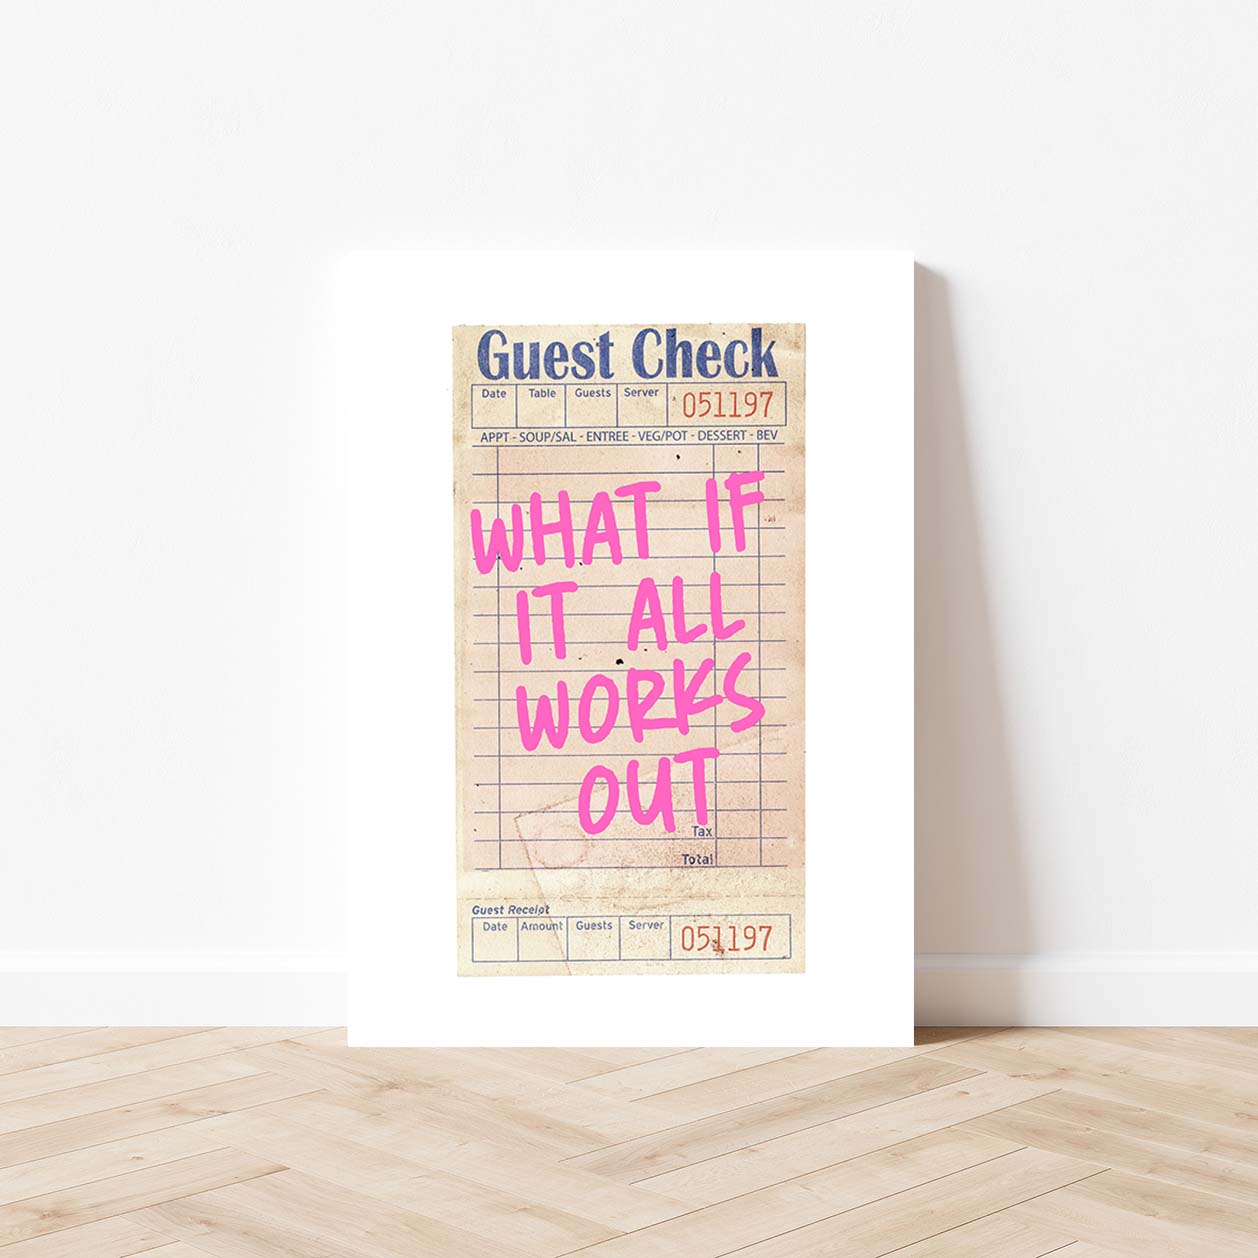 Guest Check
Date Table Guests Server 051197
APPT - SOUP/SAL - ENTREE - VEG/POT - DESSERT - BEV
WHAT IF
IT ALL
WORKS
OUT
Tax
Total
Guest Receipt
Date Amount Guests Server 051197